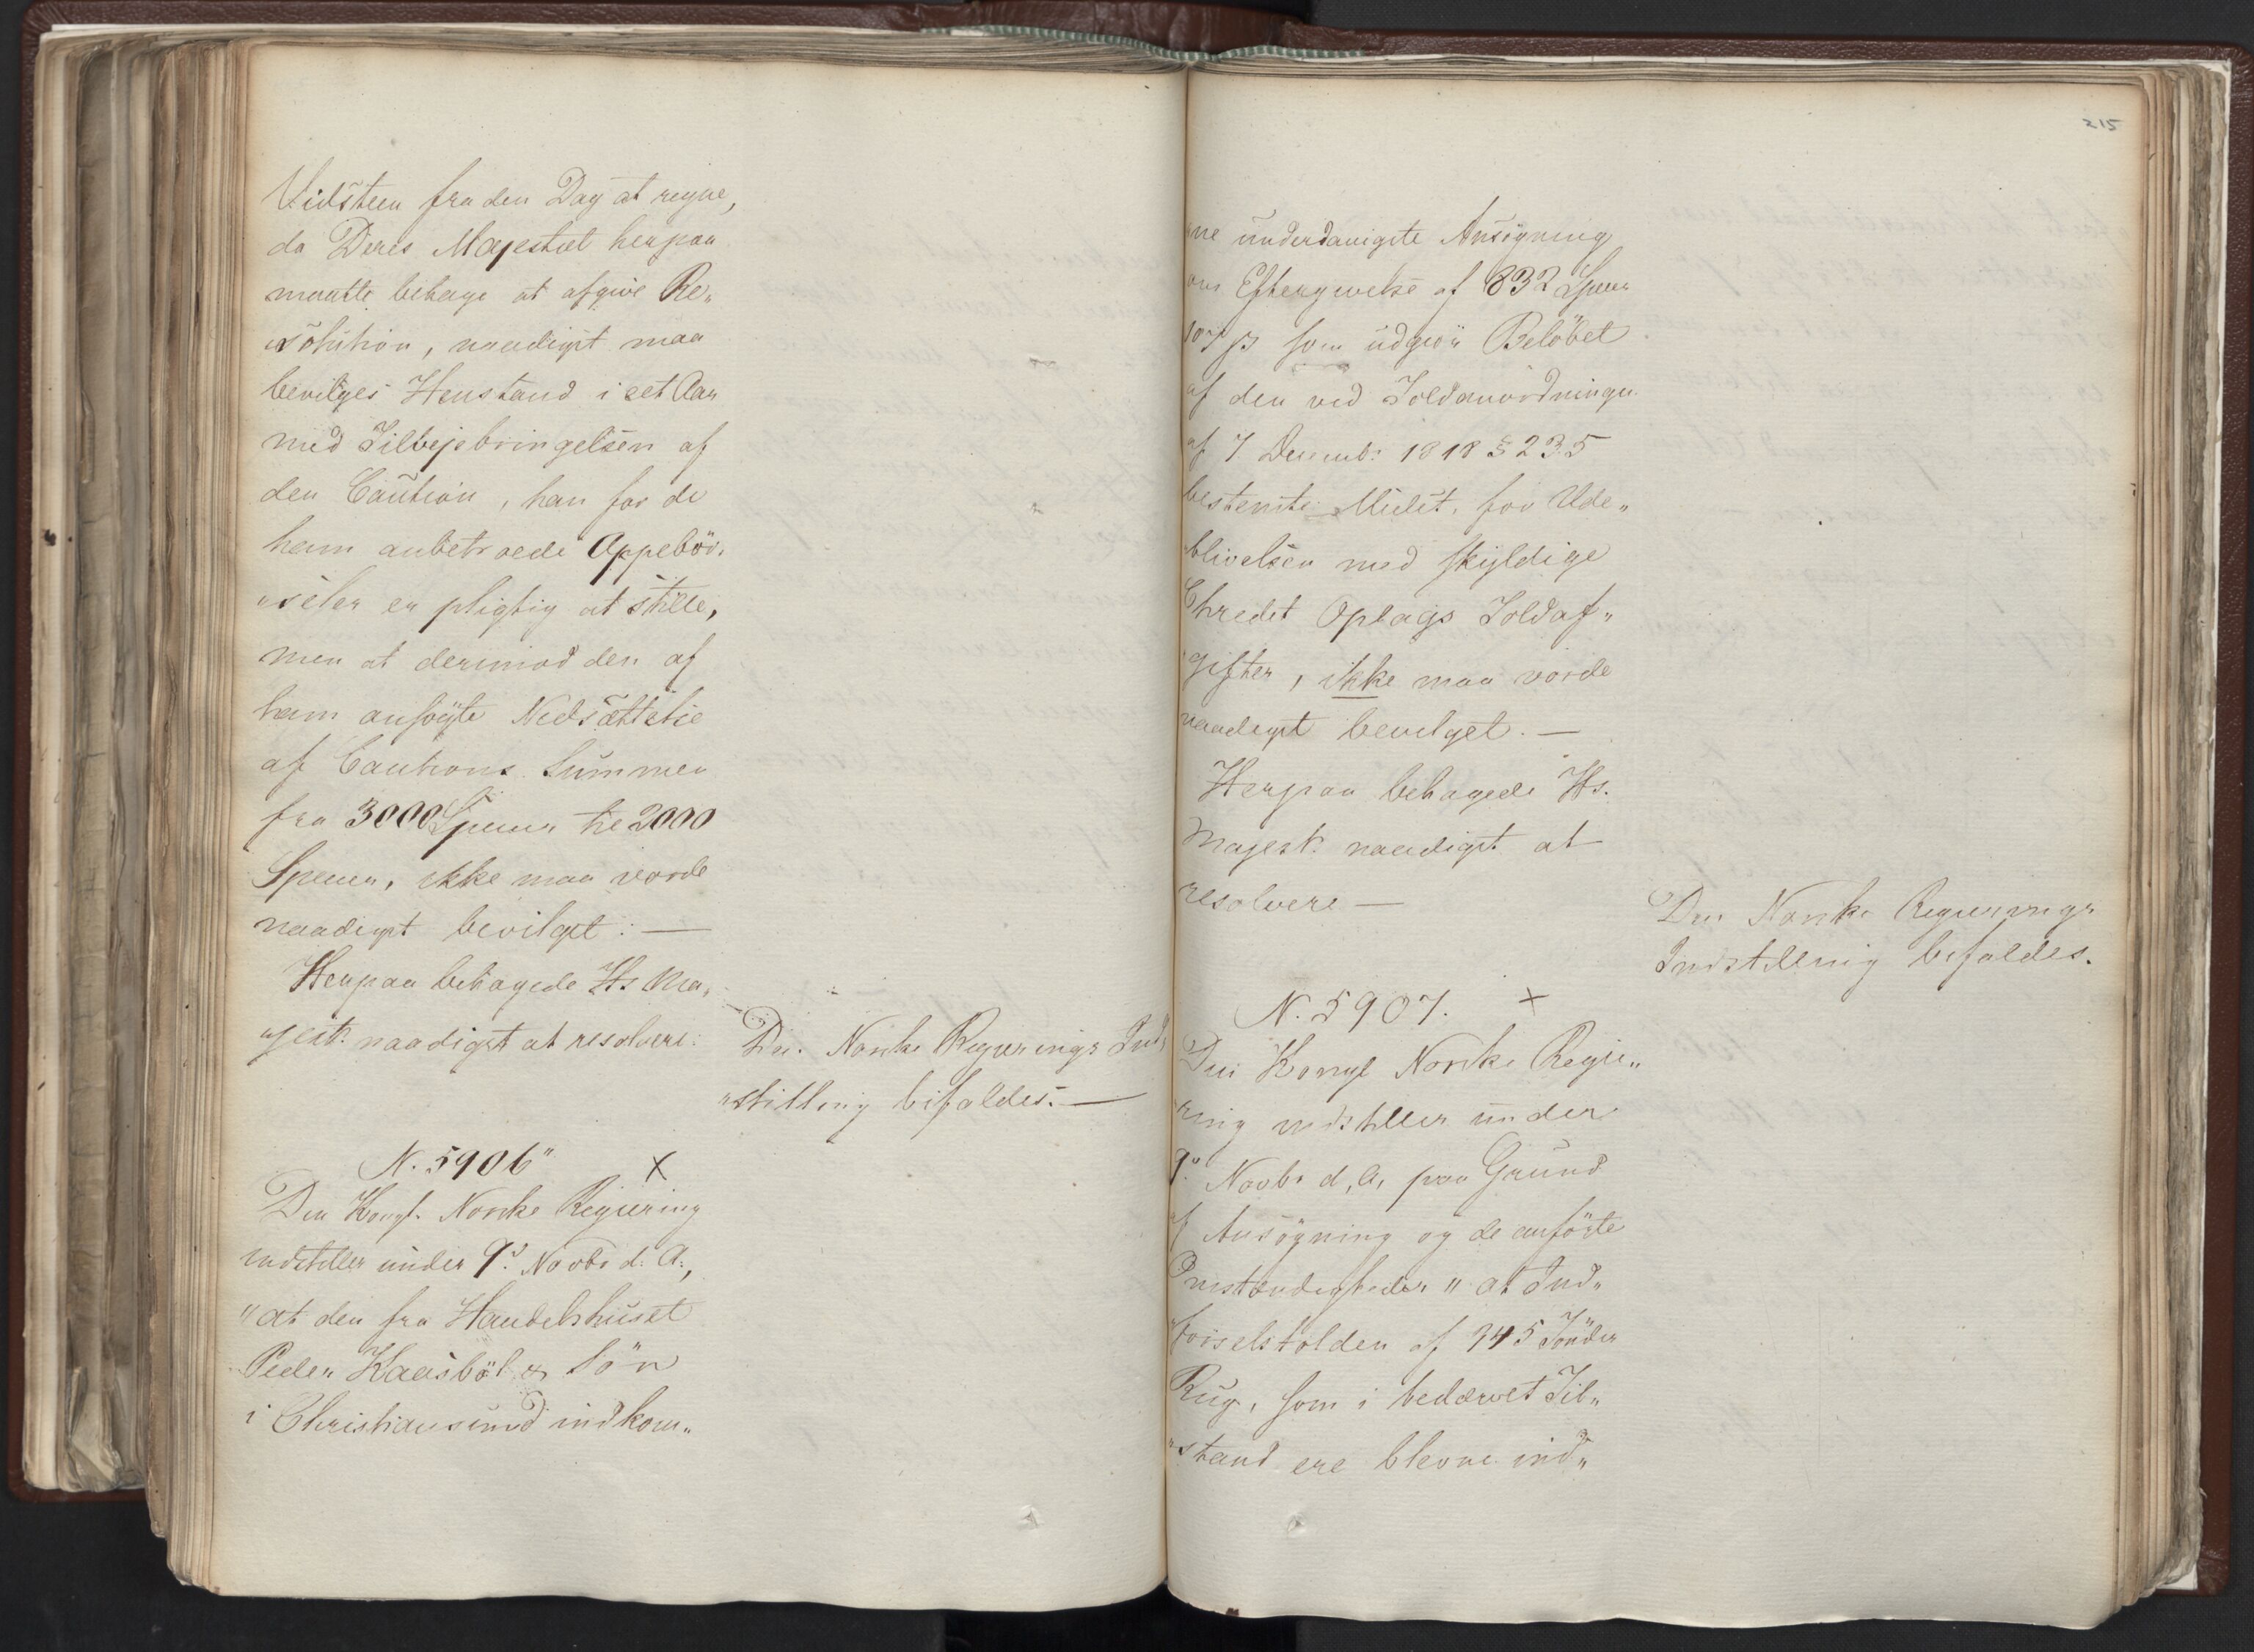 Vidsteen fra den Dag at regne,
da Deres Majestæt herpaa
maatte behage at afgive Re„
„solution, naadigst maa
bevilges Henstand i eet Aar
med Tilvejebringelsen af
den Caution, han for de
ham anbetroede Oppebör„
„seler er pligtig at stille,
men at derimod den af
ham ansögte Nedsættelse
af Cautions Summen
fra 3000 Specier til 2000
Specier, ikke maa vorde
naadigst bevilget: —
Herpaa behagede Hs Ma„
„jest: naadigst at resolvere:
Den Norske Regierings Ind„
„stilling bifaldes. —
N. 5906" x
Den Kongl. Norske Regiering
indstiller under 9de Novbr d: A:,
"at den fra Handelshuset
Peder Kaasböl & Sön
i Christiansund indkom„
215
„ne underdanigste Ansögning
om Eftergivelse af 832 Specier
107 β som udgiör Belöbet
af den ved Toldanordningen
af 7 Decemb: 1818 § 235
bestemte Mulct, for Ude„
„blivelsen med skyldige
Credit Oplags Toldaf„
„gifter, ikke maa vorde
naadigst bevilget. —
Herpaa behagede Hs.
Majest: naadigst at
resolvere —
Den Norske Regierings
Indstilling bifaldes.
N. 5907. x
Den Kongl Norske Regie„
„ring indstiller under
9de Novbr d, A, paa Grund
af Ansögning og de anförte
Omstændigheder " at Ind„
„förselstolden af 345 Tönder
Rug, som i bedærvet Til„
„stand ere blevne ind„